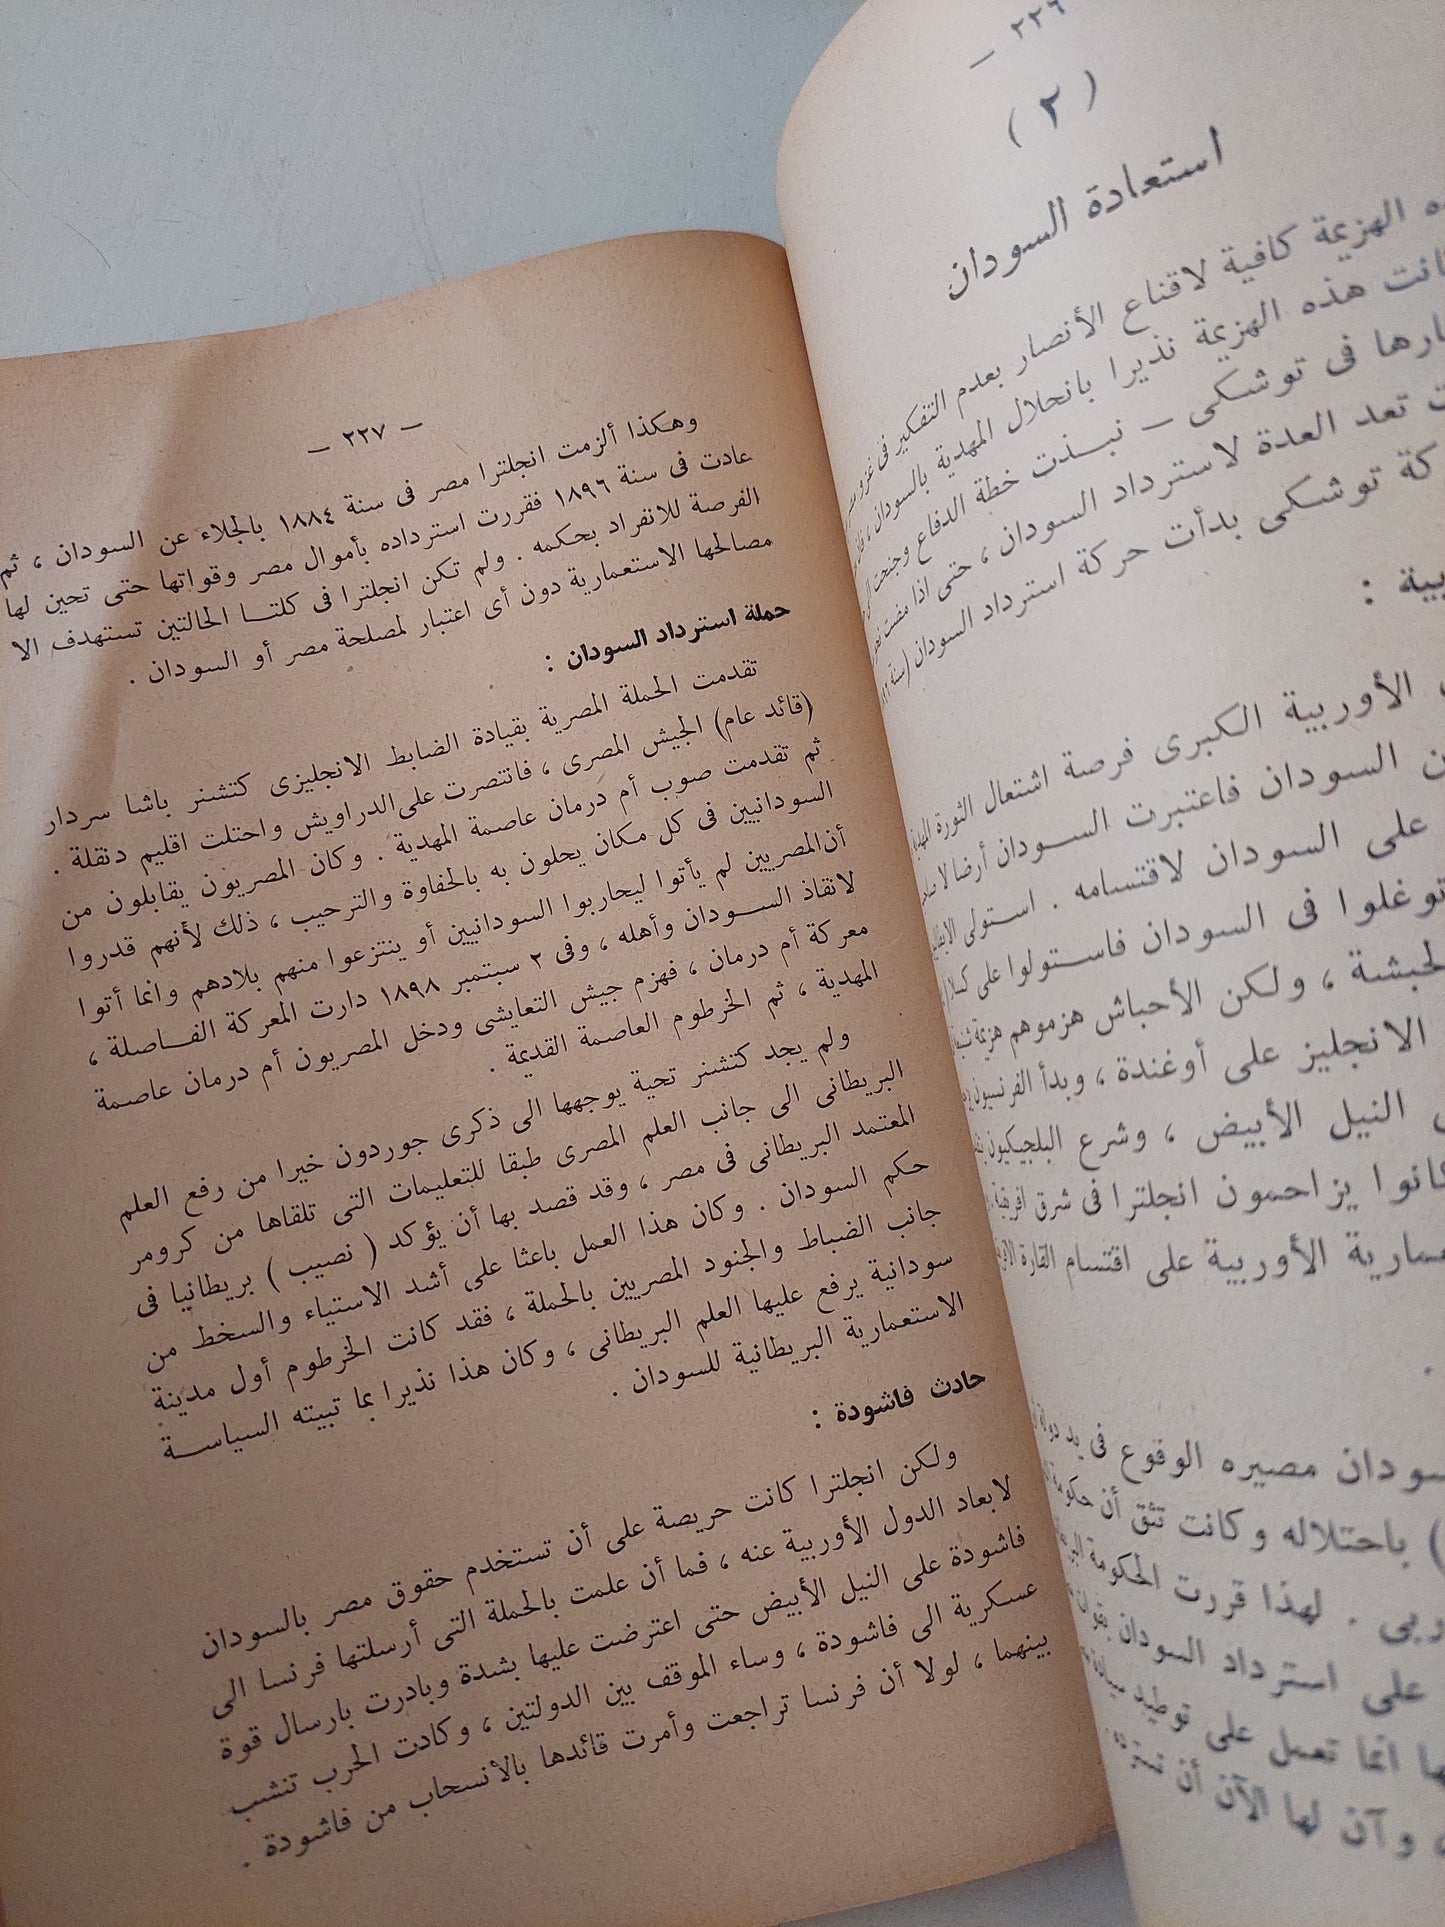 — ٢٢٦
( ٢ )
استعادة السودان
الهزيمة كافية لاقناع الأنصار بعدم التفكير فى غزو
كانت هذه الهزيمة نذيرا بانحلال المهدية بالسودان ،
فى توشكى — نبـذت خطة الدفاع وجنحت
تعد العدة لاسترداد السودان ، حتى اذا مضت
توشكى بدأت حركة استرداد السودان (سنة
:
الأوربية الكبرى فرصة اشتعال الثورة المهدية
السودان فاعتبرت السـودان أرضا لا
على السودان لاقتسامه . استولى
توغلوا فى السودان فاسـتولوا على كسلا
الحبشة ، ولكن الأحباش هزموهم هزيمة
الانجليز على أوغندة ، وبدأ الفرنسيون
النيل الأبيض ، وشرع البلجيكيون
كانوا يزاحمون انجلترا فى شرق افريقية
الأوربية على اقتسام القارة
مصيره الوقوع فى يد دولة
) باحتلاله وكانت تثق أن حكومة
. لهذا قررت الحكومة
على استرداد السودان
انما تعمل على توطيد
وآن لها الآن أن
— ٢٢٧ —
وهـكذا ألزمت انجلترا مصر فى سنة ١٨٨٤ بالجلاء عن السودان ، ثم
عادت فى سنة ١٨٩٦ فقررت استرداده بأموال مصر وقواتها حتى تحين لها
الفرصة للانفراد بحكمه . ولم تكن انجلترا فى كلتـا الحالتين تستهدف الا
مصالحها الاستعمارية دون أى اعتبار لمصلحة مصر أو السودان .
حملة استرداد السودان :
تقدمت الحملة المصرية بقيادة الضابط الانجليزى كتشنر باشا سردار
(قائد عام) الجيش المصرى ، فانتصرت على الدراويش واحتلت اقليم دنقلة .
ثم تقدمت صوب أم درمان عاصمة المهدية . وكان المصريون يقابلون من
السودانيين فى كل مكان يحلون به بالحفاوة والترحيب ، ذلك لأنهم قدروا
أن المصريين لم يأتوا ليحاربوا السودانيين أو ينتزعوا منهم بلادهم وانما أتوا
لانقاذ السـودان وأهله ، وفى ٢ سبتمبر ١٨٩٨ دارت المعركة الفـاصلة ،
معركة أم درمان ، فهزم جيش التعايشى ودخل المصريون أم درمان عاصمة
المهدية ، ثم الخرطوم العاصمة القديمة .
ولم يجد كتشنر تحية يوجهها الى ذكرى جوردون خيرا من رفع العلم
البريطانى الى جانب العلم المصرى طبقا للتعليمات التى تلقاها من كرومر
المعتمد البريطانى فى مصر ، وقد قصد بها أن يؤكد ( نصيب ) بريطانيا فى
حكم السودان . وكان هذا العمل باعثا على أشد الاستياء والسخط من
جانب الضباط والجنود المصريين بالحملة ، فقد كانت الخرطوم أول مدينة
سودانية يرفع عليها العلم البريطانى ، وكان هذا نذيرا بما تبيته السياسـة
الاستعمارية البريطانية للسودان .
حادث فاشودة :
ولكن انجلترا كانت حريصة على أن تستخدم حقوق مصر بالسودان
لابعاد الدول الأوربية عنه ، فما أن علمت بالحملة التى أرسلتها فرنسا الى
فاشودة على النيل الأبيض حتى اعترضت عليها بشدة وبادرت بارسال قوة
عسكرية الى فاشودة ، وساء الموقف بين الدولتين ، وكادت الحرب تنشب
بينهما ، لولا أن فرنسا تراجعت وأمرت قائدها بالأنسحاب من فاشودة .